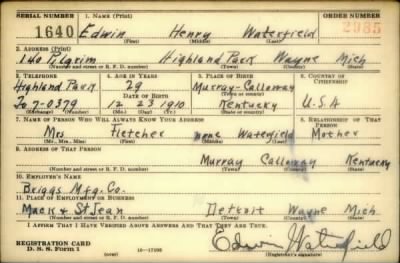 SERIAL NUMBER 1. NAME (Print) ORDER NUMBER
1640 Edwin Henry Waterfield 2985
(First) (Middle) (Last)
2. ADDRESS (Print)
140 Pilgrim Highland Park Wayne Mich
(Number and street or R. F. D. number) (Town) (County) (State)
3. TELEPHONE 4. AGE IN YEARS 5. PLACE OF BIRTH 6. COUNTRY OF CITIZENSHIP
Highland Park 29 Murray-Calloway
DATE OF BIRTH (Town or county)
To 7-0379 12 23 1910 Kentucky U.S.A
(Exchange) (Number) (Mo.) (Day) (Yr.) (State or country)
7. NAME OF PERSON WHO WILL ALWAYS KNOW YOUR ADDRESS 8. RELATIONSHIP OF THAT PERSON
Mrs Fletcher none Waterfield Mother
(Mr., Mrs., Miss) (First) (Middle) (Last)
9. ADDRESS OF THAT PERSON
Murray Calloway Kentucky
(Number and street or R. F. D. number) (Town) (County) (State)
10. EMPLOYER'S NAME
Briggs Mfg. Co.
11. PLACE OF EMPLOYMENT OR BUSINESS
Mack & St Jean Detroit Wayne Mich
(Number and street or R. F. D. number) (Town) (County) (State)
I AFFIRM THAT I HAVE VERIFIED ABOVE ANSWERS AND THAT THEY ARE TRUE.
REGISTRATION CARD Edwin Waterfield
D. S. S. Form 1 (over) (Registrant's signature)